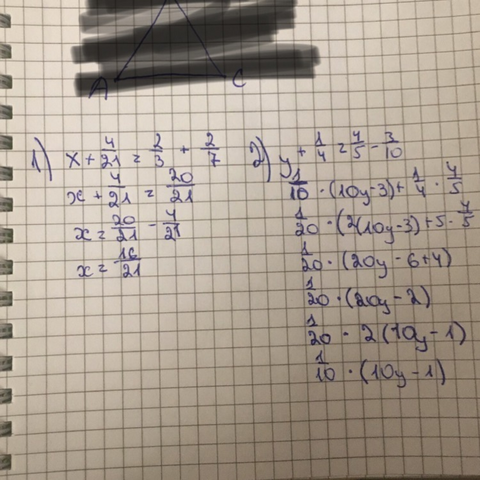 A C
1) x + 4/21 = 2/3 + 2/7
x + 4/21 = 20/21
x = 20/21 - 4/21
x = 16/21
2) y + 1/4 = 4/5 - 3/10
1/10 · (10y-3) + 1/4 · 4/5
1/20 · (2(10y-3) + 5 · 4/5
1/20 · (20y - 6 + 4)
1/20 · (20y - 2)
1/20 · 2(10y - 1)
1/10 · (10y - 1)